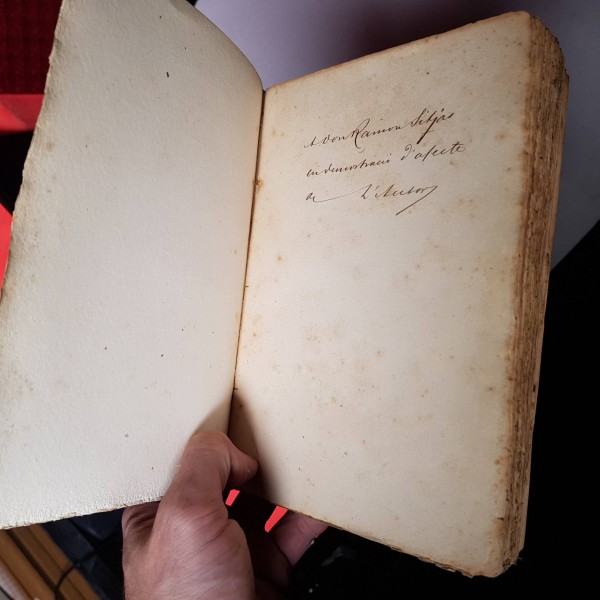 A Don Ramon Sitjás
en demostració d'afecte
de L'Autor